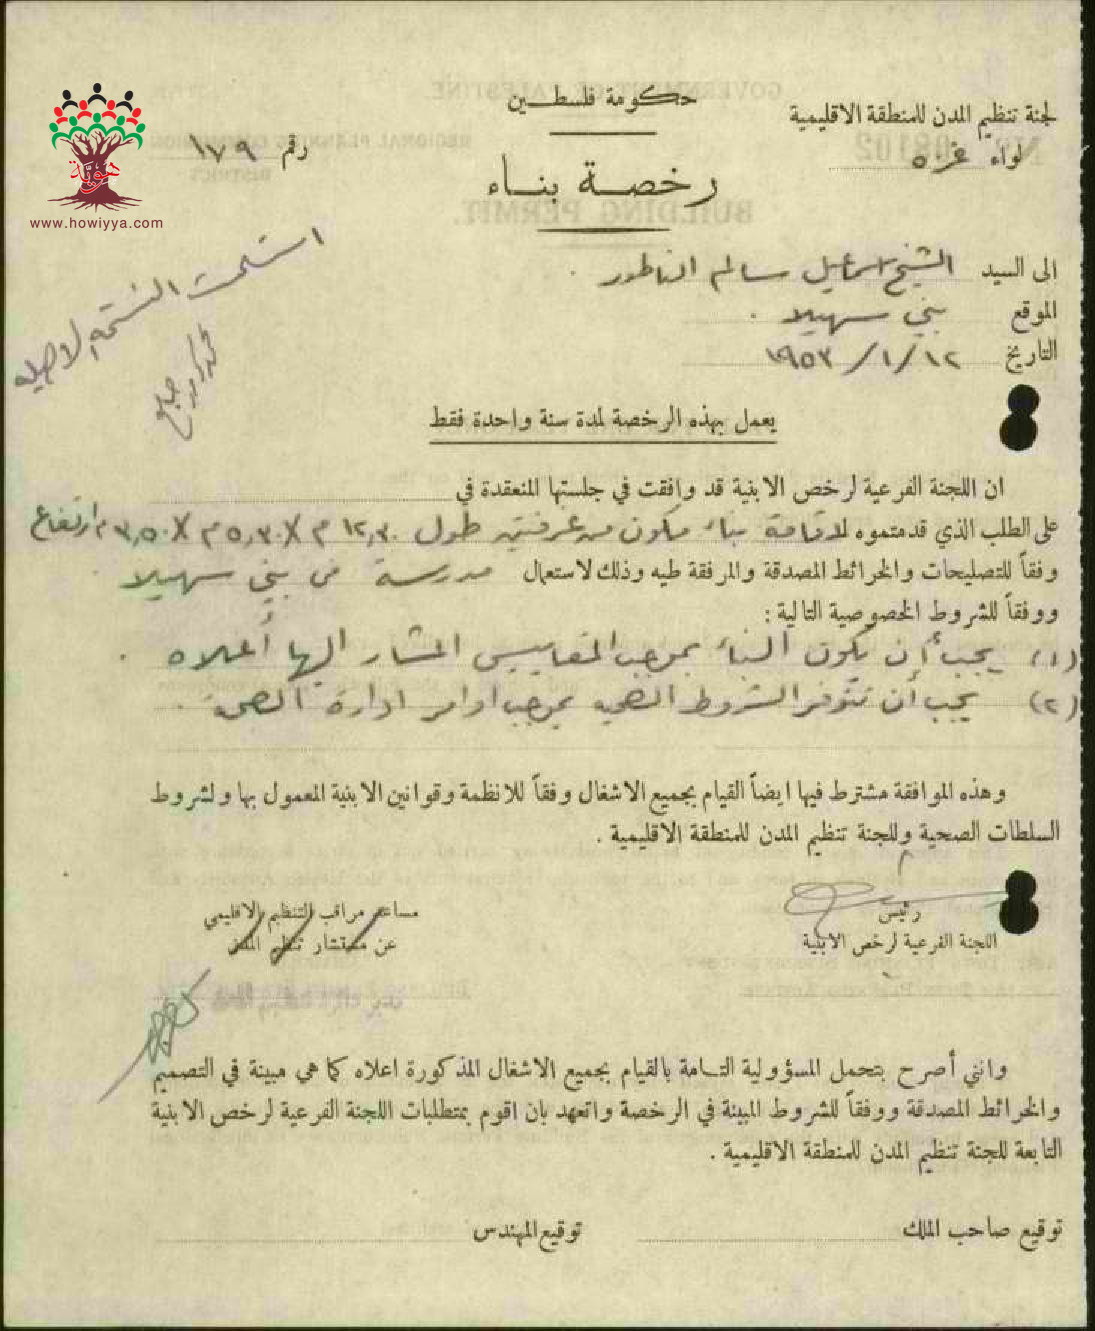 حكومة فلسطين
لجنة تنظيم المدن للمنطقة الاقليمية
لواء غزه
رقم ١٧٩
رخصة بناء
هوية
www.howiyya.com
الى السيد الشيخ اسماعيل سالم الناطور .
الموقع بني سهيلا .
التاريخ ١٢ / ١ / ١٩٥٣
استلمت النسخة الاصلية
يعمل بهذه الرخصة لمدة سنة واحدة فقط
ان اللجنة الفرعية لرخص الابنية قد وافقت في جلستها المنعقدة في
على الطلب الذي قدمتموه لاقامة بناء مكون من غرفتين طول ١٢,٣٠ م X ٥,٣٠ م X ٣,٥٠ م ارتفاع
وفقاً للتصليحات والخرائط المصدقة والمرفقة طيه وذلك لاستعمال مدرسة في بني سهيلا
ووفقاً للشروط الخصوصية التالية :
(١) يجب أن يكون البناء بموجب المقاييس المشار اليها أعلاه .
(٢) يجب أن تتوفر الشروط الصحيه بموجب اوامر ادارة الصحة .
وهذه الموافقة مشترط فيها ايضاً القيام بجميع الاشغال وفقاً للانظمة وقوانين الابنية المعمول بها ولشروط
السلطات الصحية وللجنة تنظيم المدن للمنطقة الاقليمية .
رئيس
اللجنة الفرعية لرخص الابنية
مساعد مراقب التنظيم الاقليمي
عن مستشار تنظيم المدن
وانني أصرح بتحمل المسؤولية التامة بالقيام بجميع الاشغال المذكورة اعلاه كما هي مبينة في التصميم
والخرائط المصدقة ووفقاً للشروط المبينة في الرخصة واتعهد بان اقوم بمتطلبات اللجنة الفرعية لرخص الابنية
التابعة للجنة تنظيم المدن للمنطقة الاقليمية .
توقيع صاحب الملك
توقيع المهندس